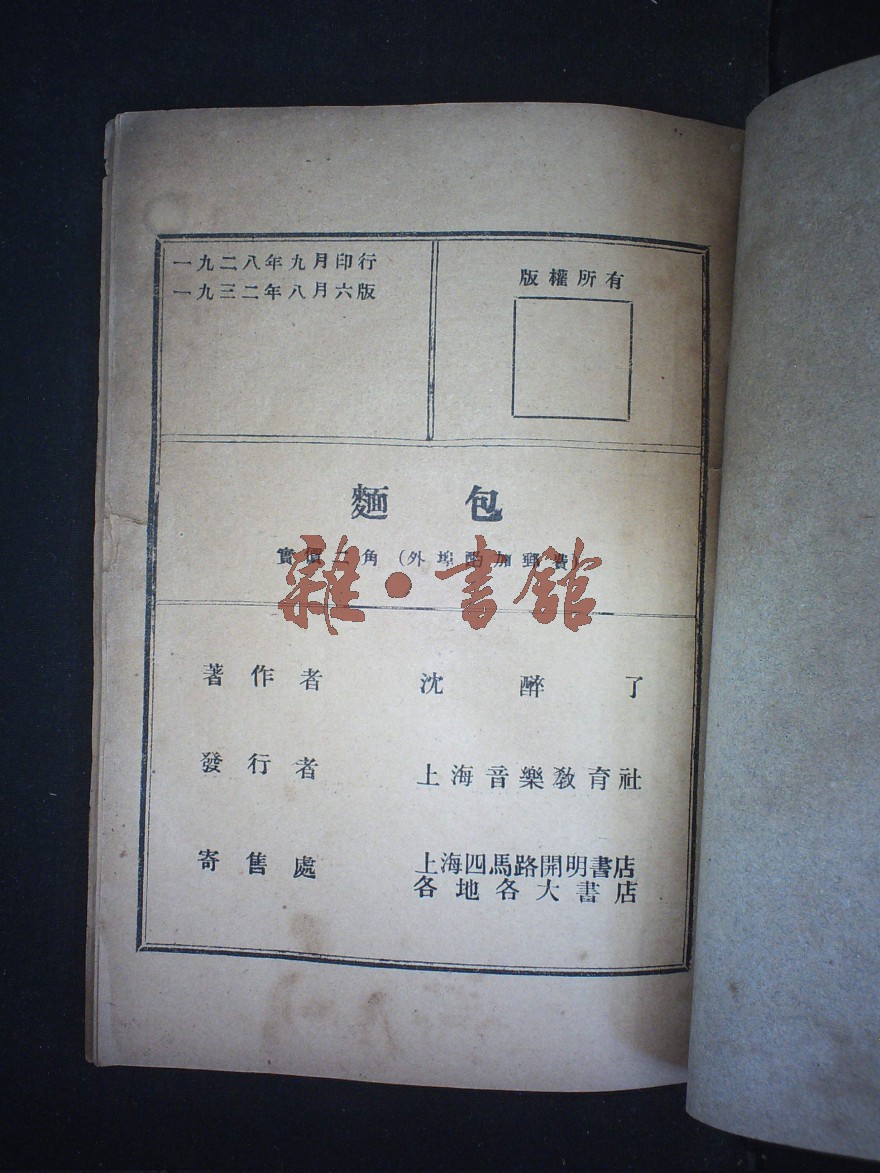 一九二八年九月印行
一九三二年八月六版
版權所有
麵包
實價二角（外埠酌加郵費）
雜·書館
著作者 沈醉了
發行者 上海音樂教育社
寄售處 上海四馬路開明書店
各地各大書店